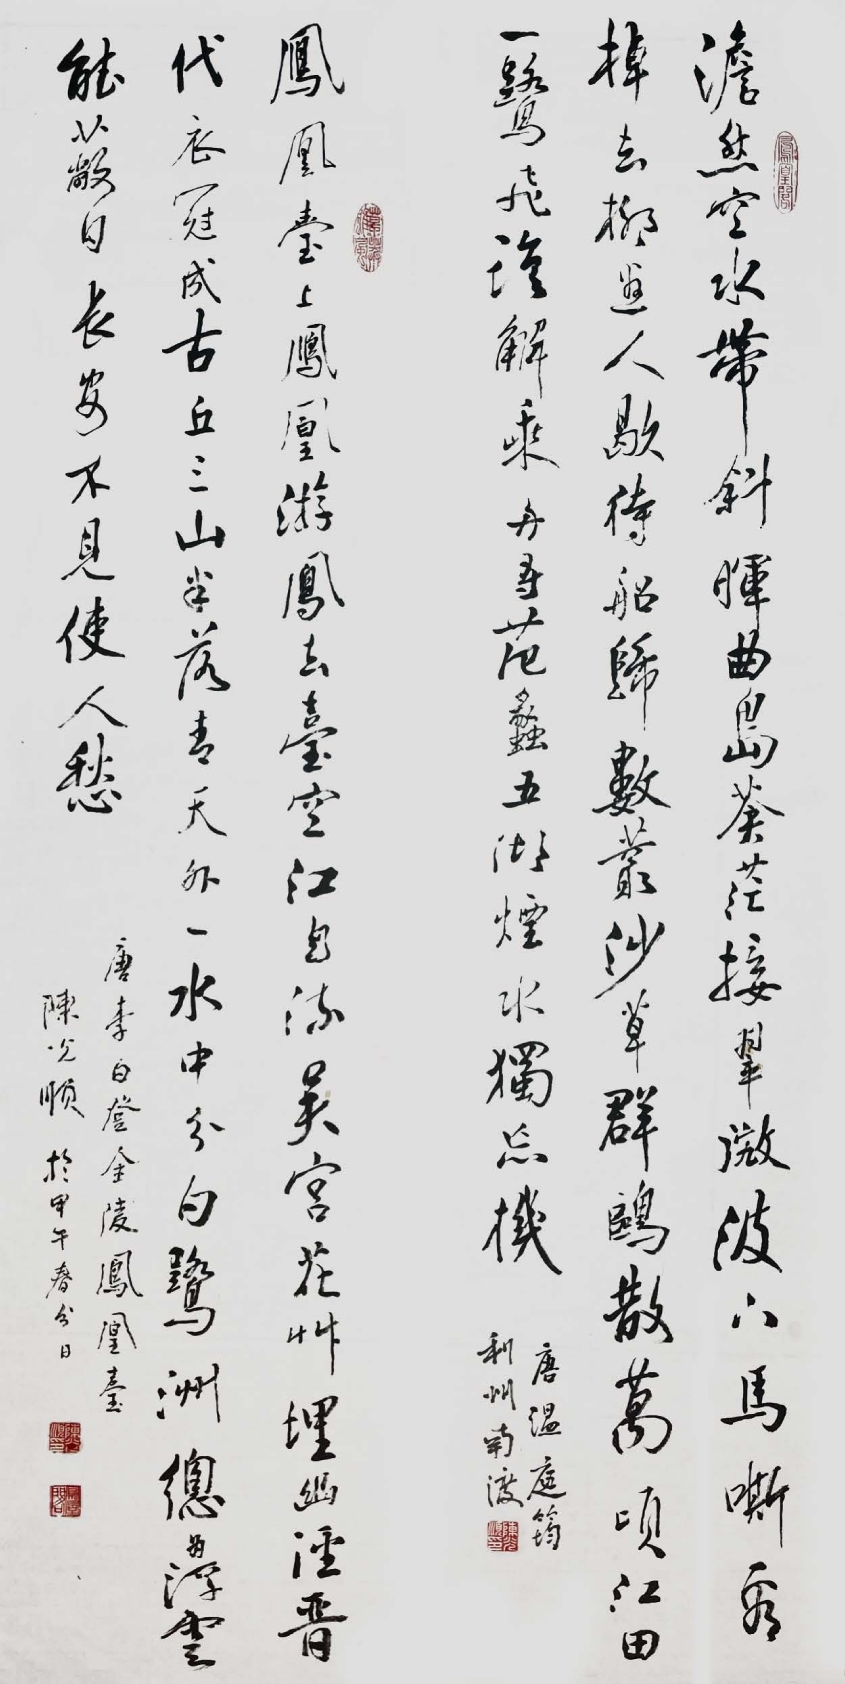 澹然空水帶斜暉曲島蒼茫接翠微波下馬嘶看
棹去柳邊人歇待船歸數叢沙草群鷗散萬頃江田
一鷺飛誰解乘舟尋范蠡五湖煙水獨忘機
唐溫庭筠
利州南渡
鳳凰臺上鳳凰游鳳去臺空江自流吳宮花艸埋幽徑晉
代衣冠成古丘三山半落青天外一水中分白鷺洲總為浮雲
能蔽日長安不見使人愁
唐李白登金陵鳳凰臺
陳光順於甲午春分日